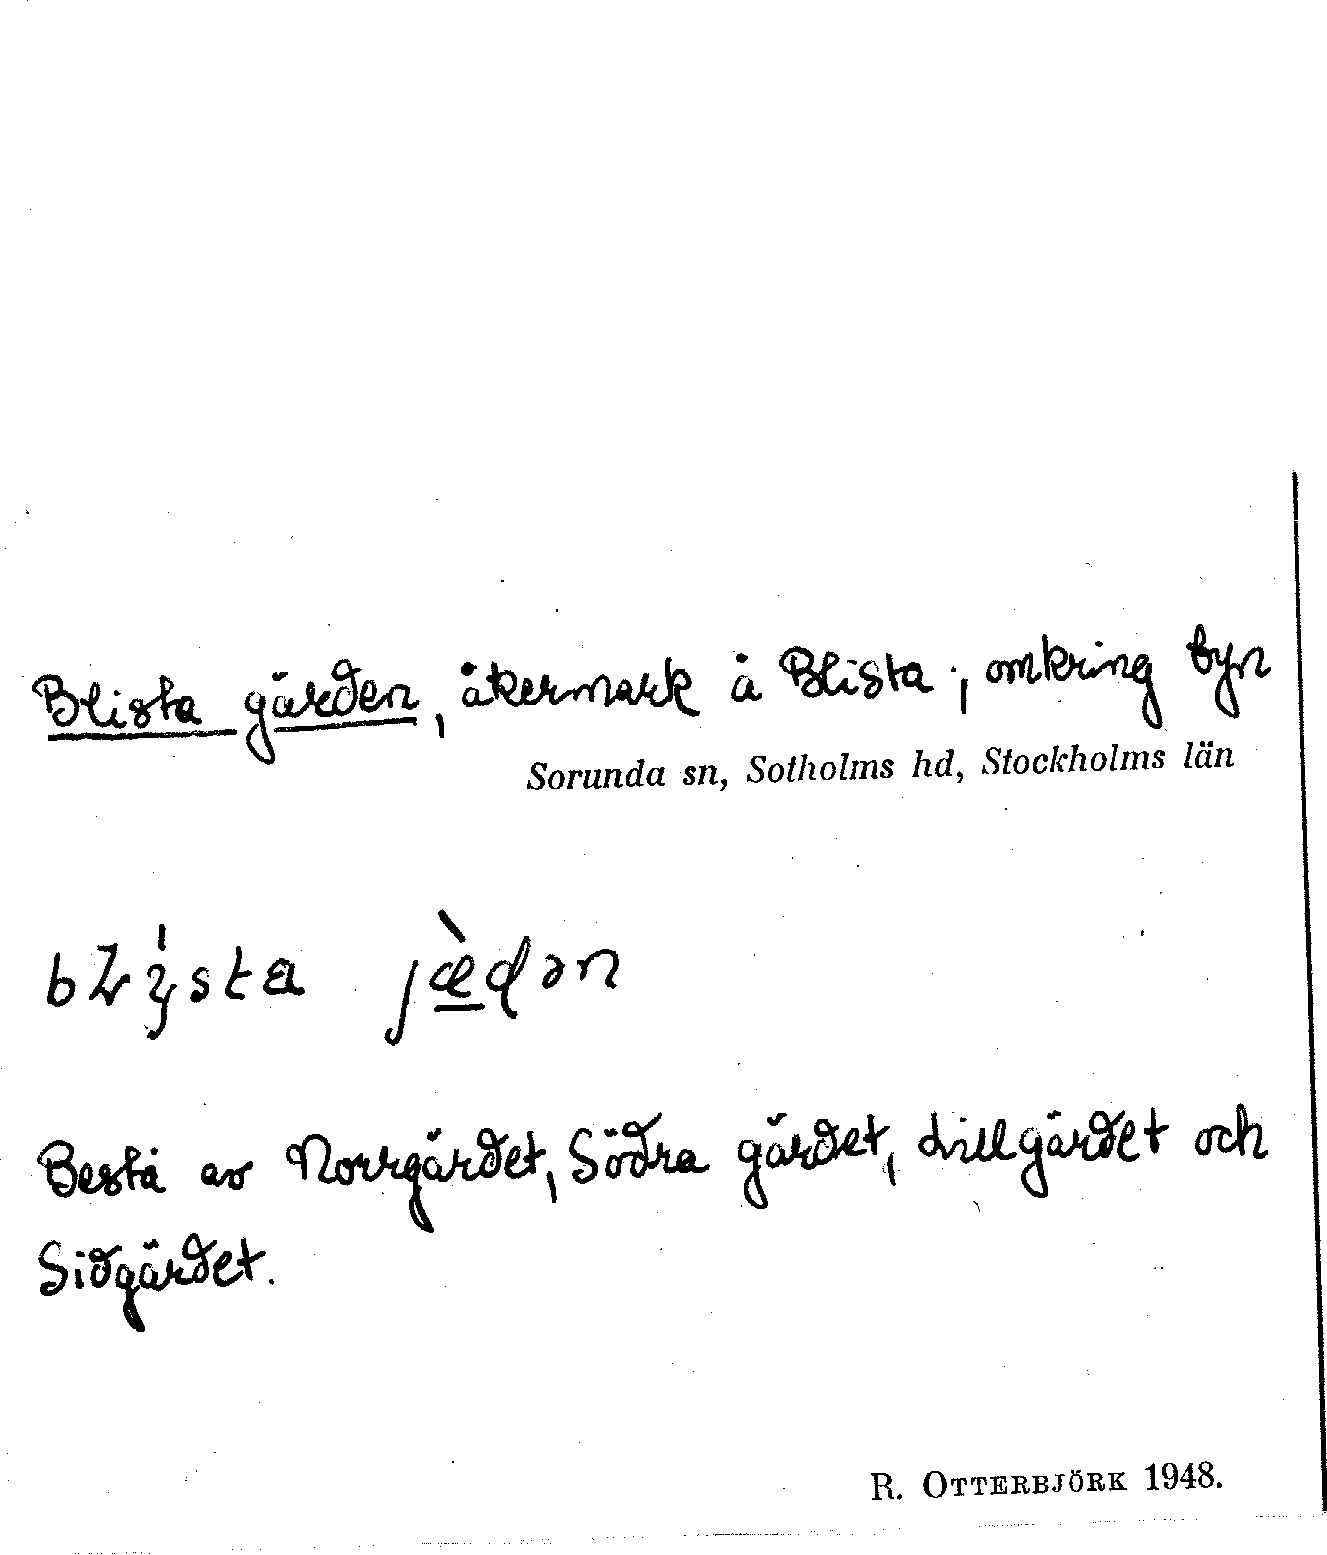 Blista gärden, åkermark å Blista; omkring byn
Sorunda sn, Sotholms hd, Stockholms län
sta
Bestå av Norrgärdet, Södra gärdet, Lillgärdet och
Sidgärdet.
R. OTTERBJÖRK 1948.